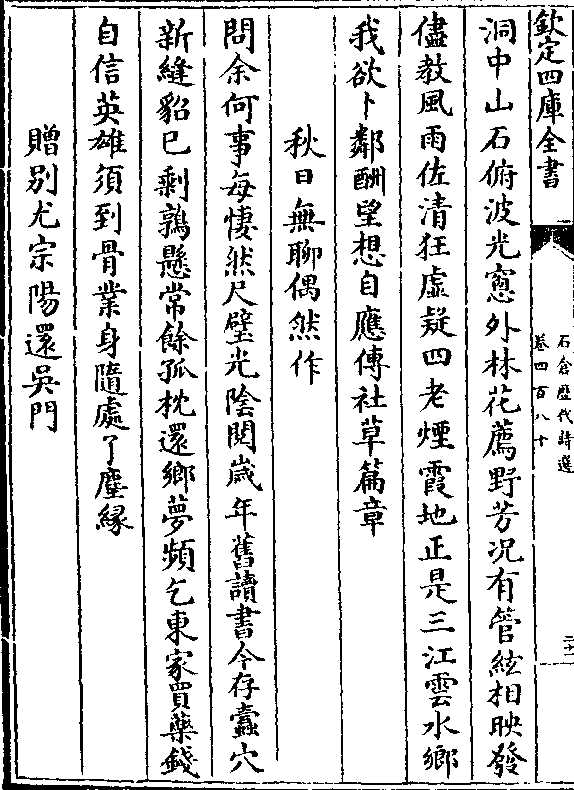 欽定四庫全書
石倉歷代詩選
卷四百八十
二十一
洞中山石俯波光窻外林花薦野芳况有管絃相映發
儘教風雨佐清狂虛疑四老煙霞地正是三江雲水鄉
我欲卜鄰酬望想自應傳社草篇章
秋日無聊偶然作
問余何事每悽然尺璧光陰閱歲年舊讀書今存蠧穴
新縫貂已剩鶉懸常餘孤枕還鄉夢頻乞東家買藥錢
自信英雄須到骨業身隨處了塵緣
贈别尤宗陽還吳門